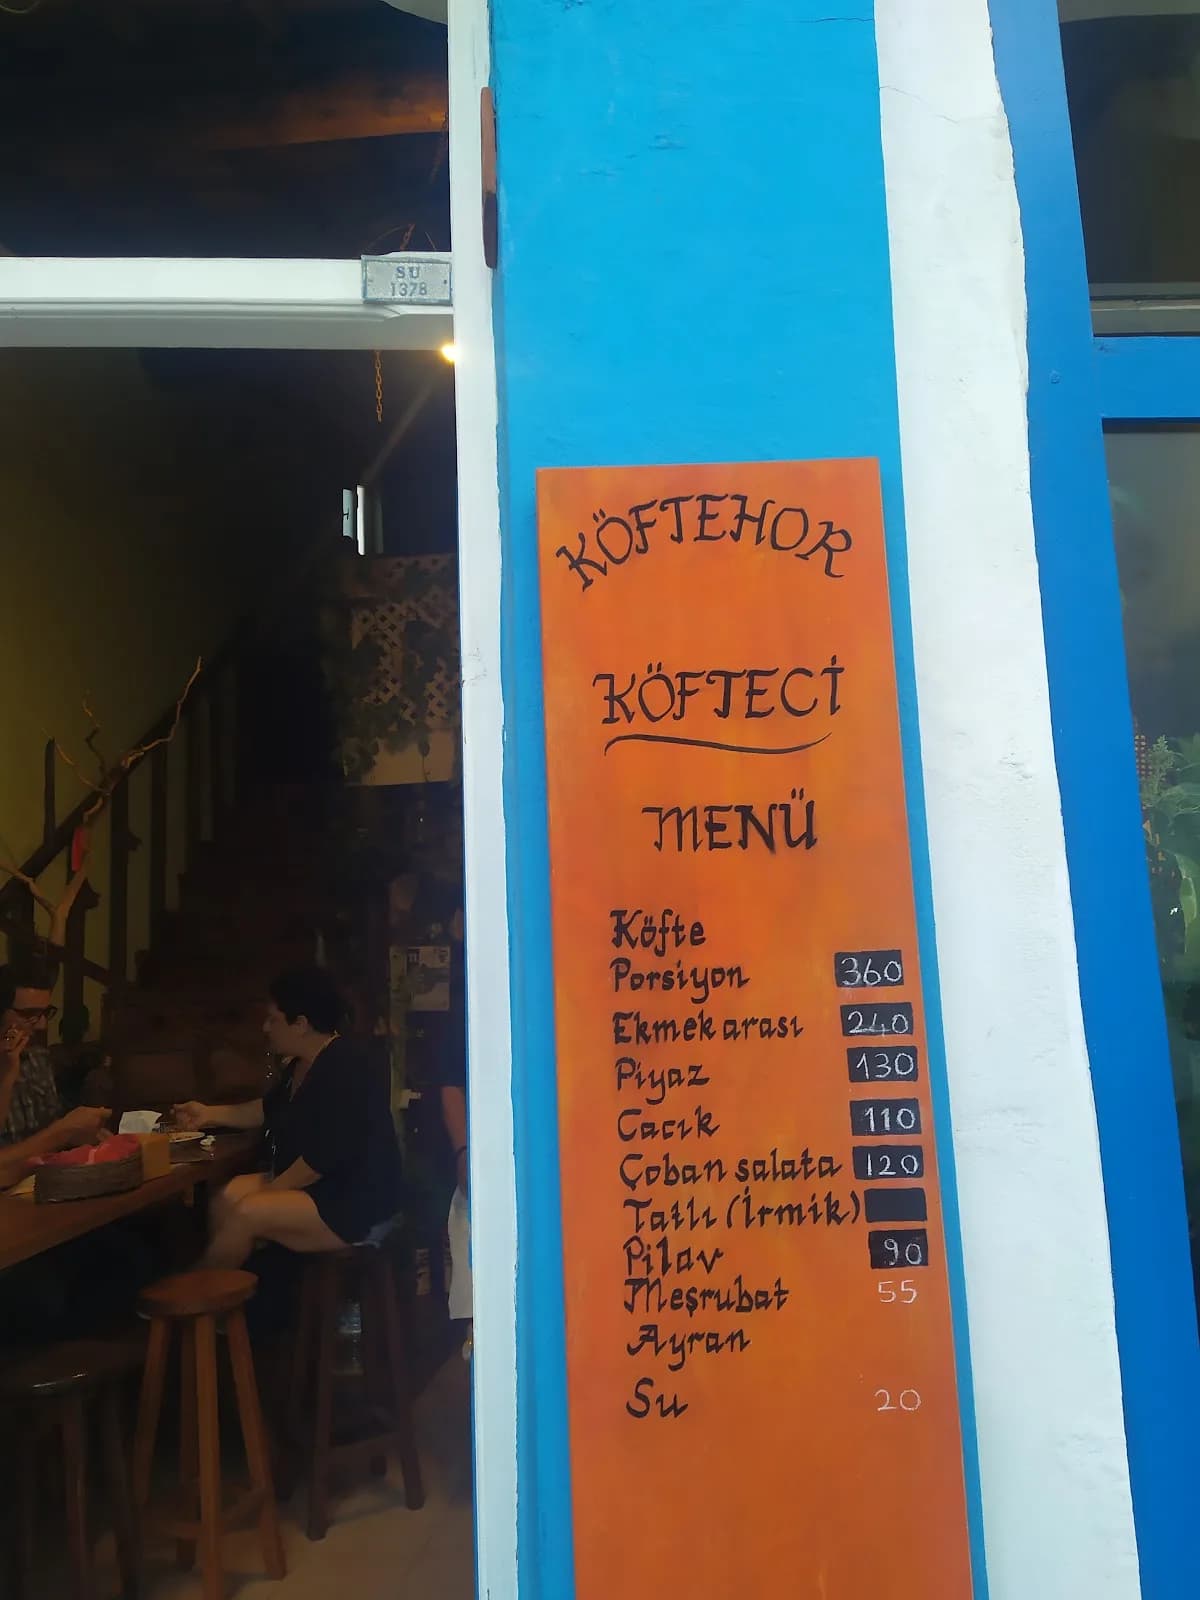 SU
1378
KÖFTEHOR
KÖFTECİ
MENÜ
Köfte
Porsiyon 360
Ekmek arası 240
Piyaz 130
Cacık 110
Çoban salata 120
Tatlı (İrmik)
Pilav 90
Meşrubat 55
Ayran
Su 20